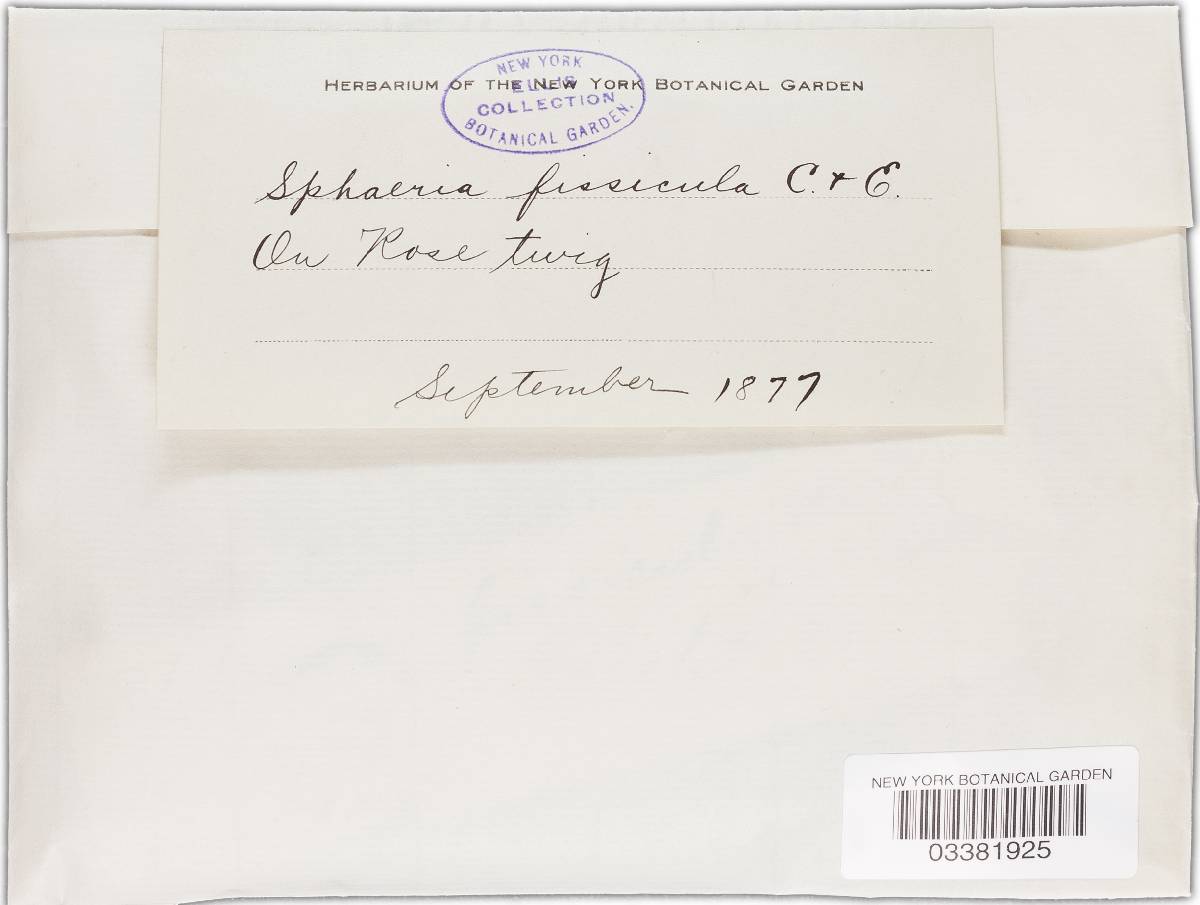 HERBARIUM OF THE NEW YORK BOTANICAL GARDEN
NEW YORK
ELLIS
COLLECTION
BOTANICAL GARDEN.
Sphaeria fissicula C. & E.
On Rose twig
September 1877
NEW YORK BOTANICAL GARDEN
03381925